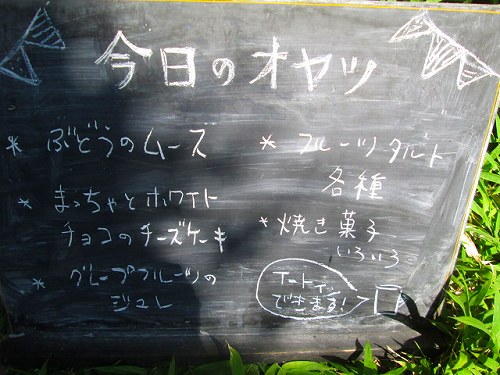 今日のオヤツ
* ぶどうのムーズ
* まっちゃとホワイト
チョコのチーズケーキ
* グレープフルーツの
ジュレ
* フルーツタルト
各種
* 焼き菓子
いろいろ
イートイン
できます!